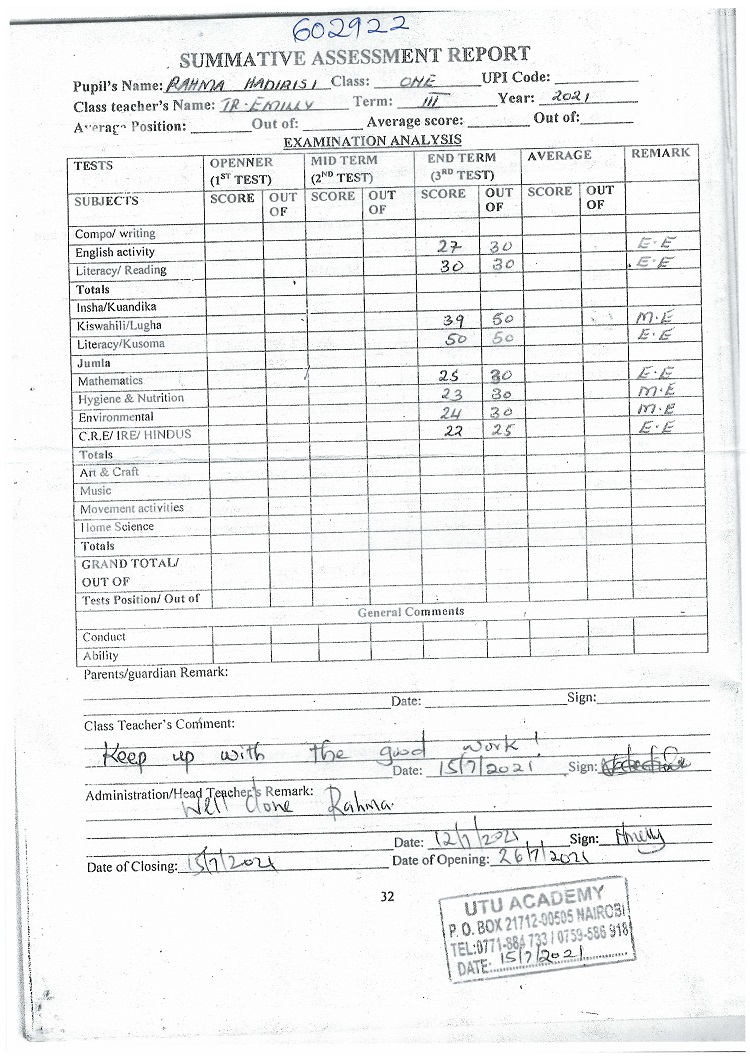 602922
SUMMATIVE ASSESSMENT REPORT
Pupil's Name: RAHMA HADIRISI Class: ONE UPI Code:
Class teacher's Name: TR. EMILLY Term: III Year: 2021
Average Position: Out of: Average score: Out of:
EXAMINATION ANALYSIS
TESTS OPENNER (1ST TEST) MID TERM (2ND TEST) END TERM (3RD TEST) AVERAGE REMARK
SUBJECTS SCORE OUT OF SCORE OUT OF SCORE OUT OF SCORE OUT OF
Compo/ writing
English activity 27 30 E.E
Literacy/ Reading 30 30 E.E
Totals
Insha/Kuandika
Kiswahili/Lugha 39 50 M.E
Literacy/Kusoma 50 50 E.E
Jumla
Mathematics 25 30 E.E
Hygiene & Nutrition 23 30 M.E
Environmental 24 30 M.E
C.R.E/ IRE/ HINDUS 22 25 E.E
Totals
Art & Craft
Music
Movement activities
Home Science
Totals
GRAND TOTAL/
OUT OF
Tests Position/ Out of
General Comments
Conduct
Ability
Parents/guardian Remark:
Date: Sign:
Class Teacher's Comment:
Keep up with the good work!
Date: 15/7/2021 Sign:
Administration/Head Teacher's Remark:
Well done Rahma.
Date: 12/7/2021 Sign:
Date of Closing: 15/7/2021 Date of Opening: 26/7/2021
32
UTU ACADEMY
P. O. BOX 21712-00505 NAIROBI
TEL:0771-884 733 / 0759-586 918
DATE: 15/7/2021